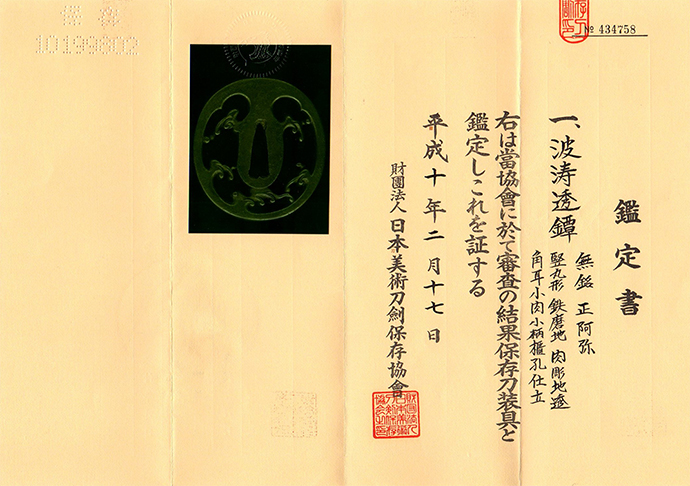 № 434758
鑑定書
一、波涛透鐔
無銘 正阿弥
竪丸形 鉄磨地 肉彫地透
角耳小肉 小柄櫃孔仕立
右は當協會に於て審査の結果保存刀装具と
鑑定しこれを証する
平成十年二月十七日
財團法人 日本美術刀劍保存協會
保存
10199802